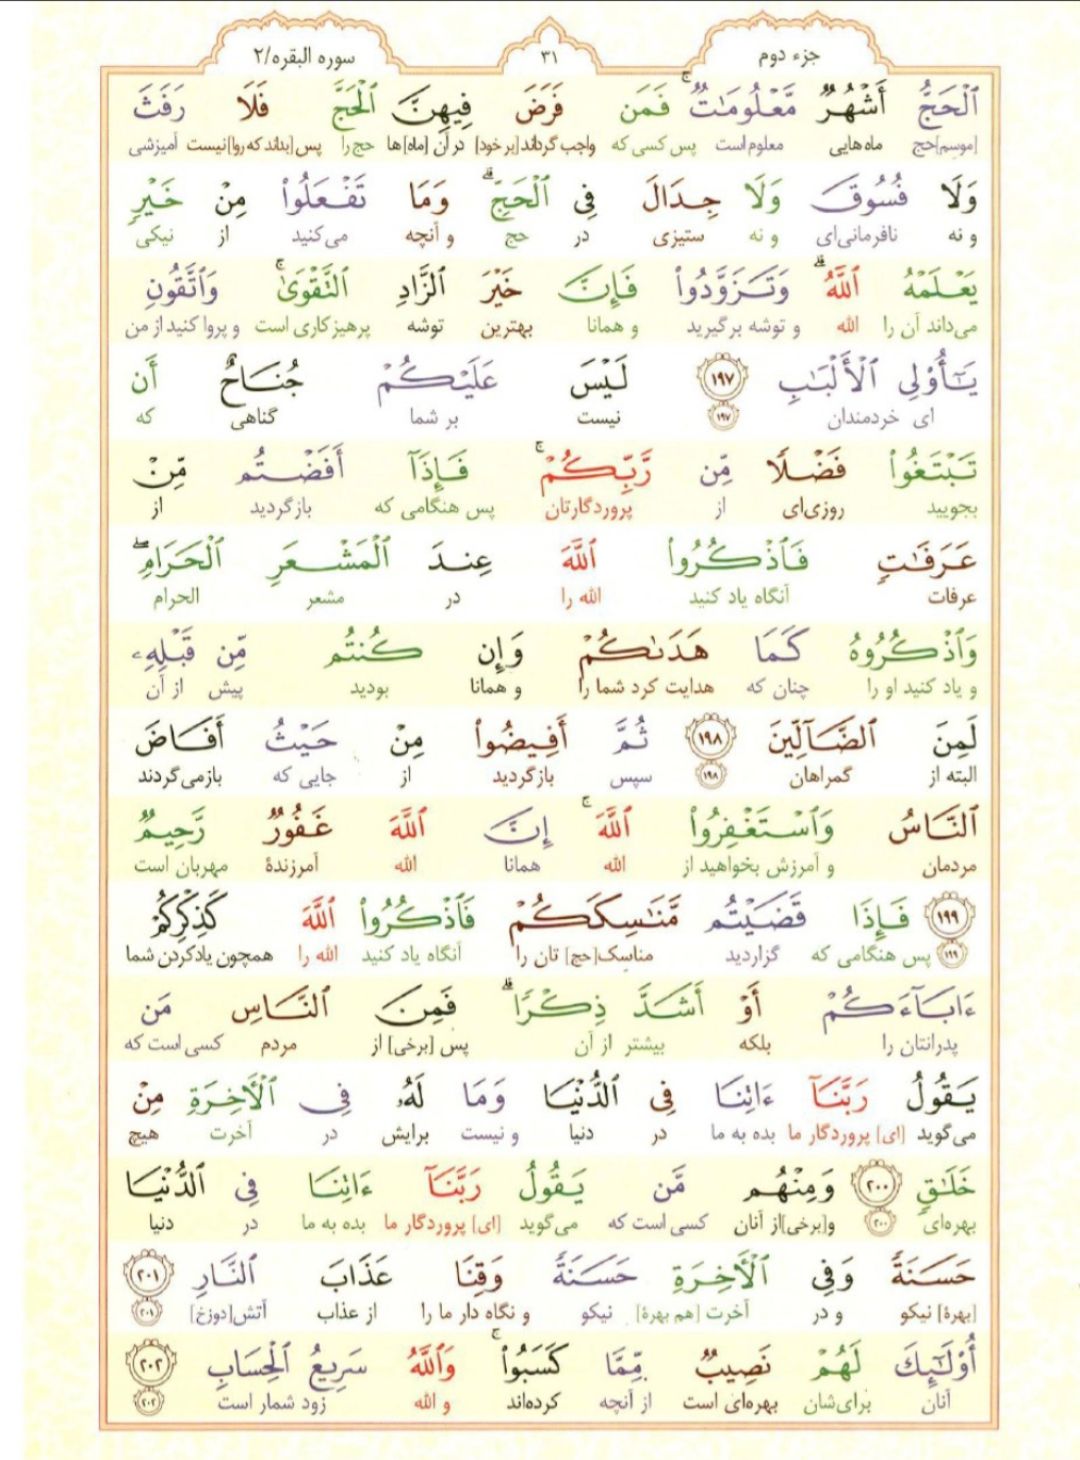 جزء دوم ۳۱ سوره البقره/۲
ٱلْحَجُّ أَشْهُرٌ مَّعْلُومَٰتٌ ۚ فَمَن فَرَضَ فِيهِنَّ ٱلْحَجَّ فَلَا رَفَثَ
[موسم]حج ماه‌هایی معلوم است پس کسی که واجب گرداند[بر خود] در آن [ماه]ها حج را پس[بداند که روا]نیست آمیزشی
وَلَا فُسُوقَ وَلَا جِدَالَ فِى ٱلْحَجِّ ۗ وَمَا تَفْعَلُوا۟ مِنْ خَيْرٍ
و نه نافرمانی‌ای و نه ستیزی در حج و آنچه می‌کنید از نیکی
يَعْلَمْهُ ٱللَّهُ ۗ وَتَزَوَّدُوا۟ فَإِنَّ خَيْرَ ٱلزَّادِ ٱلتَّقْوَىٰ ۚ وَٱتَّقُونِ
می‌داند آن را الله و توشه برگیرید و همانا بهترین توشه پرهیزکاری است و پروا کنید از من
يَٰٓأُو۟لِى ٱلْأَلْبَٰبِ ۱۹۷ لَيْسَ عَلَيْكُمْ جُنَاحٌ أَن
ای خردمندان ۱۹۷ نیست بر شما گناهی که
تَبْتَغُوا۟ فَضْلًا مِّن رَّبِّكُمْ ۚ فَإِذَآ أَفَضْتُم مِّنْ
بجویید روزی‌ای از پروردگارتان پس هنگامی که بازگردید از
عَرَفَٰتٍ فَٱذْكُرُوا۟ ٱللَّهَ عِندَ ٱلْمَشْعَرِ ٱلْحَرَامِ ۖ
عرفات آنگاه یاد کنید الله را در مشعر الحرام
وَٱذْكُرُوهُ كَمَا هَدَىٰكُمْ وَإِن كُنتُم مِّن قَبْلِهِۦ
و یاد کنید او را چنان که هدایت کرد شما را و همانا بودید پیش از آن
لَمِنَ ٱلضَّآلِّينَ ۱۹۸ ثُمَّ أَفِيضُوا۟ مِنْ حَيْثُ أَفَاضَ
البته از گمراهان ۱۹۸ سپس بازگردید از جایی که بازمی‌گردند
ٱلنَّاسُ وَٱسْتَغْفِرُوا۟ ٱللَّهَ ۚ إِنَّ ٱللَّهَ غَفُورٌ رَّحِيمٌ
مردمان و آمرزش بخواهید از الله همانا الله آمرزندهٔ مهربان است
۱۹۹ فَإِذَا قَضَيْتُم مَّنَٰسِكَكُمْ فَٱذْكُرُوا۟ ٱللَّهَ كَذِكْرِكُمْ
۱۹۹ پس هنگامی که گزاردید مناسک[حج] تان را آنگاه یاد کنید الله را همچون یادکردن شما
ءَابَآءَكُمْ أَوْ أَشَدَّ ذِكْرًا ۗ فَمِنَ ٱلنَّاسِ مَن
پدرانتان را بلکه بیشتر از آن پس [برخی] از مردم کسی است که
يَقُولُ رَبَّنَآ ءَاتِنَا فِى ٱلدُّنْيَا وَمَا لَهُۥ فِى ٱلْأَخِرَةِ مِنْ
می‌گوید [ای] پروردگار ما بده به ما در دنیا و نیست برایش در آخرت هیچ
خَلَٰقٍ ۲۰۰ وَمِنْهُم مَّن يَقُولُ رَبَّنَآ ءَاتِنَا فِى ٱلدُّنْيَا
بهره‌ای ۲۰۰ و[برخی]از آنان کسی است که می‌گوید [ای] پروردگار ما بده به ما در دنیا
حَسَنَةً وَفِى ٱلْأَخِرَةِ حَسَنَةً وَقِنَا عَذَابَ ٱلنَّارِ ۲۰۱
[بهرهٔ] نیکو و در آخرت [هم بهرهٔ] نیکو و نگاه دار ما را از عذاب آتش[دوزخ] ۲۰۱
أُو۟لَٰٓئِكَ لَهُمْ نَصِيبٌ مِّمَّا كَسَبُوا۟ ۚ وَٱللَّهُ سَرِيعُ ٱلْحِسَابِ ۲۰۲
آنان برای‌شان بهره‌ای است از آنچه کرده‌اند و الله زود شمار است ۲۰۲